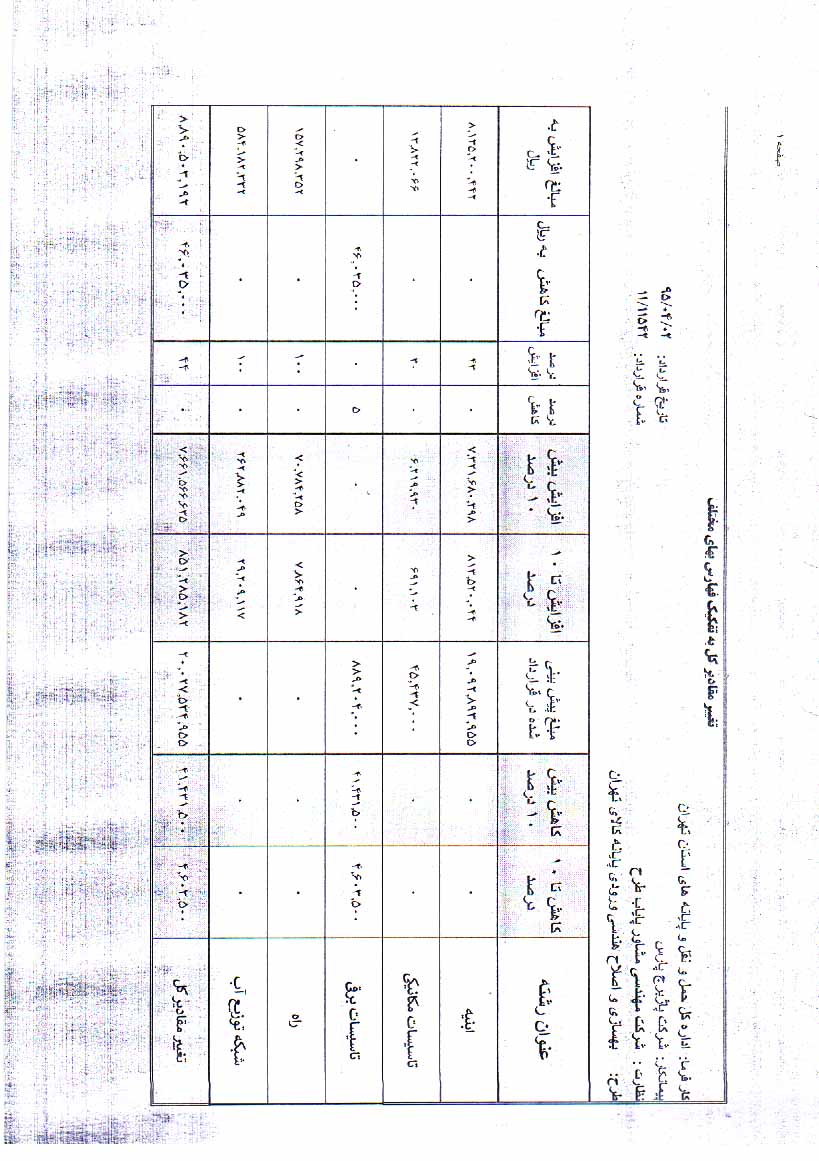 صفحه ۱
تغییر مقادیر کل به تفکیک فهارس بهای مختلف
کارفرما: اداره کل حمل و نقل و پایانه های استان تهران
پیمانکار: شرکت پاژبرج پارس
تاریخ قرارداد: ۹۵/۰۴/۰۲
نظارت : شرکت مهندسی مشاور پایاب طرح
شماره قرارداد: ۱۱/۱۱۵۴۲
طرح: بهسازی و اصلاح هندسی ورودی پایانه کالای تهران
عنوان رشته | کاهش تا ۱۰ درصد | کاهش بیش ۱۰ درصد | مبلغ پیش بینی شده در قرارداد | افزایش تا ۱۰ درصد | افزایش بیش ۱۰ درصد | درصد کاهش | درصد افزایش | مبالغ کاهش به ریال | مبالغ افزایش به ریال
ابنیه | ۰ | ۰ | ۱۹,۰۹۲,۸۹۳,۹۵۵ | ۸۱۳,۵۲۰,۰۴۴ | ۷,۳۲۱,۶۸۰,۳۹۸ | ۰ | ۴۳ | ۰ | ۸,۱۳۵,۲۰۰,۴۴۲
تاسیسات مکانیکی | ۰ | ۰ | ۴۵,۴۳۷,۰۰۰ | ۶۹۱,۱۰۳ | ۶,۲۱۹,۹۳۰ | ۰ | ۳۰ | ۰ | ۱۳,۸۲۲,۰۶۶
تاسیسات برق | ۴,۶۰۳,۵۰۰ | ۴۱,۴۳۱,۵۰۰ | ۸۸۹,۲۰۴,۰۰۰ | ۰ | ۰ | ۵ | ۰ | ۴۶,۰۳۵,۰۰۰ | ۰
راه | ۰ | ۰ | ۰ | ۷,۸۶۴,۹۱۸ | ۷۰,۷۸۴,۲۵۸ | ۰ | ۱۰۰ | ۰ | ۱۵۷,۲۹۸,۳۵۲
شبکه توزیع آب | ۰ | ۰ | ۰ | ۲۹,۲۰۹,۱۱۷ | ۲۶۲,۸۸۲,۰۴۹ | ۰ | ۱۰۰ | ۰ | ۵۸۴,۱۸۲,۳۳۲
تغییر مقادیر کل | ۴,۶۰۳,۵۰۰ | ۴۱,۴۳۱,۵۰۰ | ۲۰,۰۲۷,۵۳۴,۹۵۵ | ۸۵۱,۲۸۵,۱۸۲ | ۷,۶۶۱,۵۶۶,۶۳۵ | ۰ | ۴۴ | ۴۶,۰۳۵,۰۰۰ | ۸,۸۹۰,۵۰۳,۱۹۲